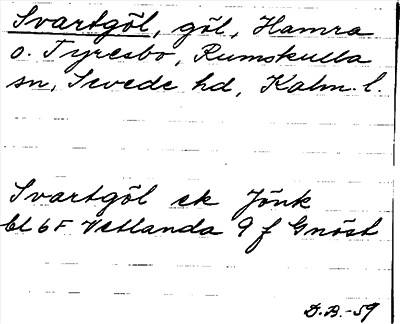 Svartgöl, göl, Hamra
o. Tyresbo, Rumskulla
sn, Sevede hd, Kalm. l.
Svartgöl ek Jönk
bl 6F Vetlanda 9 f Gnöst
D.A.-59